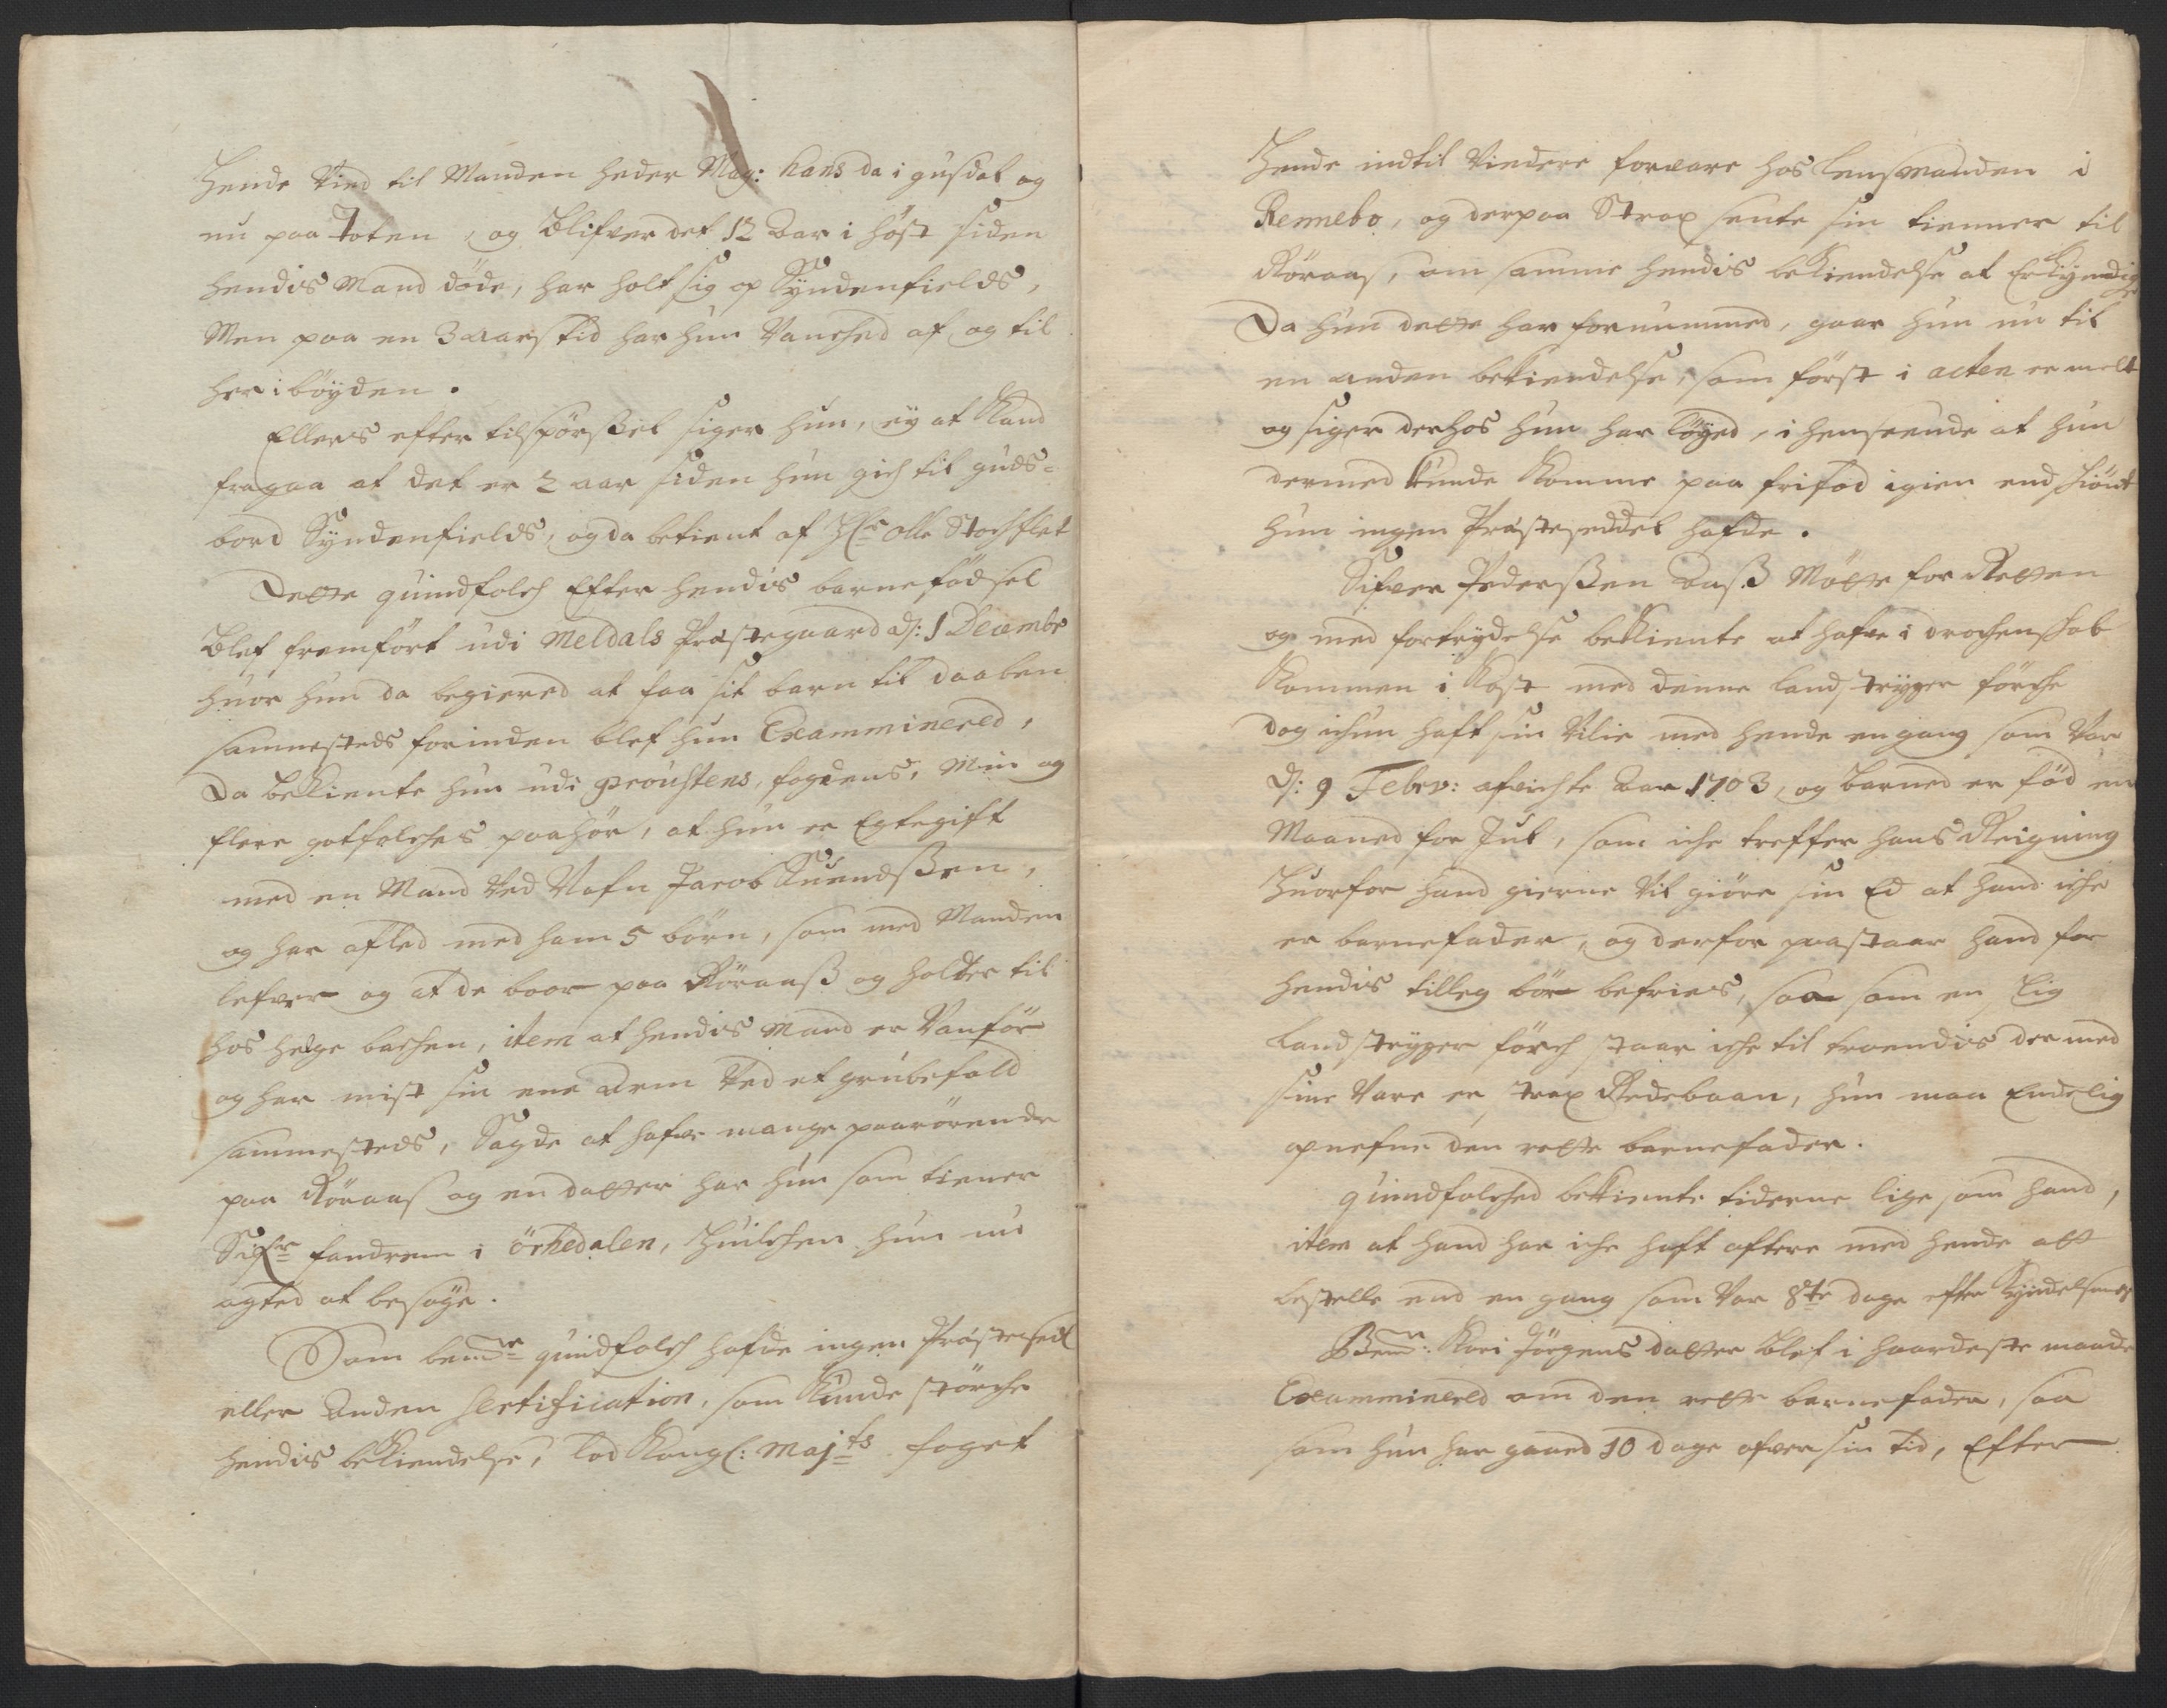 Hende Vied til Manden heder Mag: Hans da i gusdal og
nu paa Toten, og blifver det 12 Aar i höst siden
hendis Mand döde, har holt sig op Syndenfields,
Men paa en 3 aars tid har hun Vanched af og til
her i böyden.
Ellers efter tilspörßel siger hun, ey at Kand
fragaa at det er 2 aar siden hun gich til guds-
bord Syndenfields, og da betient af Hr Olle Stochflet
Dette quindfolch Efter hendis barnefödsel
blef fremfört udi Meldals Præstegaard d: 1 Decembr
huor hun da begiered at faa sit barn til daaben
sammesteds forinden blef hun Examminered,
Da bekiente hun udi Proustens, fogdens, Min og
flere gotfolches paahör, at hun er Egtegift
med en Mand Ved Nafn Jacob Suendßen,
og har afled med ham 5 börn, som med Manden
lefver og at de boor paa Röraaß og holder til
hos helge bachen, item at hendis Mand er Vanför
og har mist sin ene Arm Ved et grubefald
sammesteds, Sagde at hafve mange paarörende
paa Röraas og en datter har hun som tiener
Sifr fandrem i örkedalen, Huilchen hun nu
agted at besöge.
Som bemte quindfolch hafde ingen Præstesedl
eller Anden Sertification, som Kunde störche
hendis bekiendelse, lod Kongl: Majts foget
Hende indtil Viedere forvare hos Lensmanden i
Rennebo, og derpaa Strax sente sin tienner til
Röraas, om samme hendis bekiendelse at Erkyndige
Da hun dette har fornummed, gaar hun nu til
en anden bekiendelse, som först i acten er melt
og siger derhos hun har löyed, i henseende at hun
dermed kunde Komme paa frifod igien endskiönt
hun ingen Præsteseddel hafde.
Sifver Pederßen Aaß Mötte for Retten
og med fortrydelse bekiente at hafve i drochenskab
Kommen i Kast med denne landstryger förche
dog ichun haft sin Vilie med hende en gang som Var
d: 9 Febrv: afvichte Aar 1703, og barned er föd en
Maaned for Jul, som iche treffer hans Reigning
Huorfor hand gierne Vil giöre sin Ed at hand iche
er barnefader, og derfor paastaar hand for
hendis tilleg bör befries, saa som en slig
landstryger förch staar iche til troendis der med
sine Vare er strax Redebaan, hun maa Endelig
opnefne den rette barnefader.
quindfolched bekiente tiderne lige som hand,
item at hand har iche haft oftere med hende att
bestelle end en gang som Var 8te dage efter Kyndelsmes
Bemte: Kari Jörgens datter blef i haardeste maade
Examminered om den rette barnefader, saa
som hun har gaaed 10 dage ofver sin tid, Efter